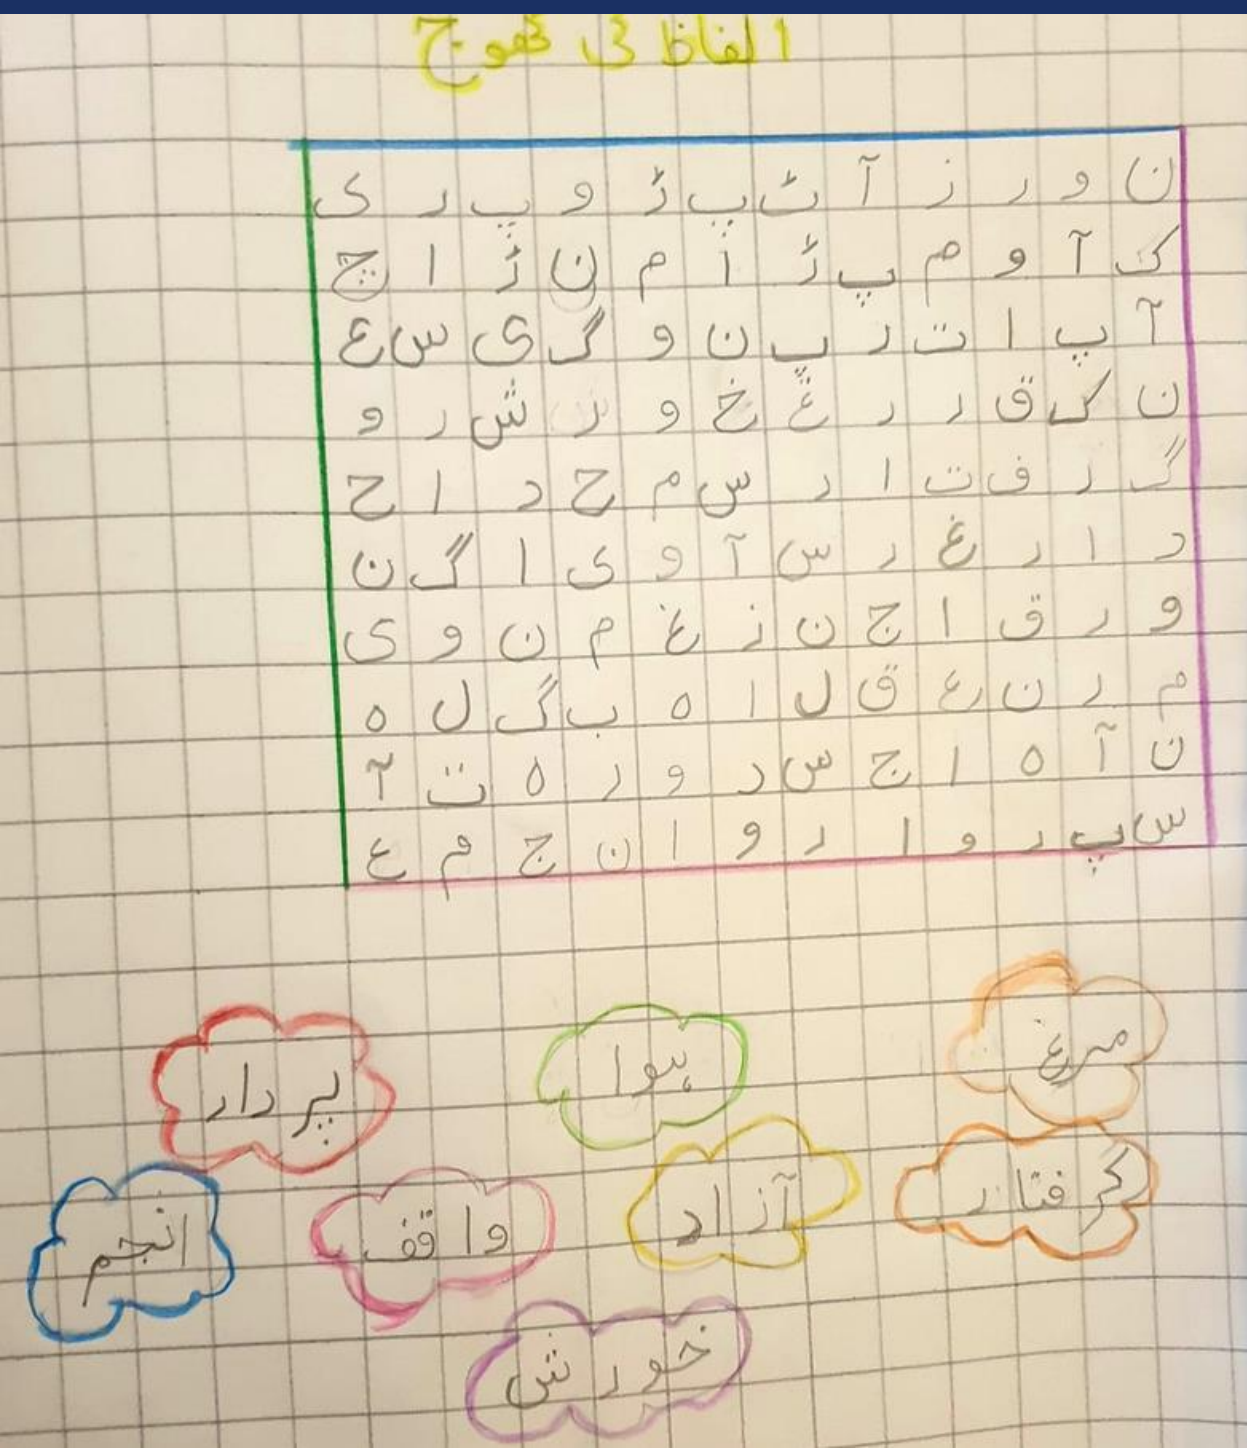 الفاظ کی کھوج
ن و ر ز آ ٹ پ ڑ و پ ر ی
ک آ و م پ ڑ ا م ن ڑ ا چ
آ پ ا ت ر پ ن و گ ی س ع
ن ک ق ر ر غ خ و ر ش ر و
گ ر ف ت ا ر س م ح د ا ح
د ا ر غ ر س آ و ی ا گ ن
و ر ق ا ج ن ز غ م ن و ی
م ر ن ع ق ل ا ه ب گ ل ه
ن آ ه ا ج س ر و ر ه ت آ
س پ ر و ا ر و ا ن ج م ع
مرغ
ہوا
پردار
گرفتار
آزاد
واقف
انجم
خورش